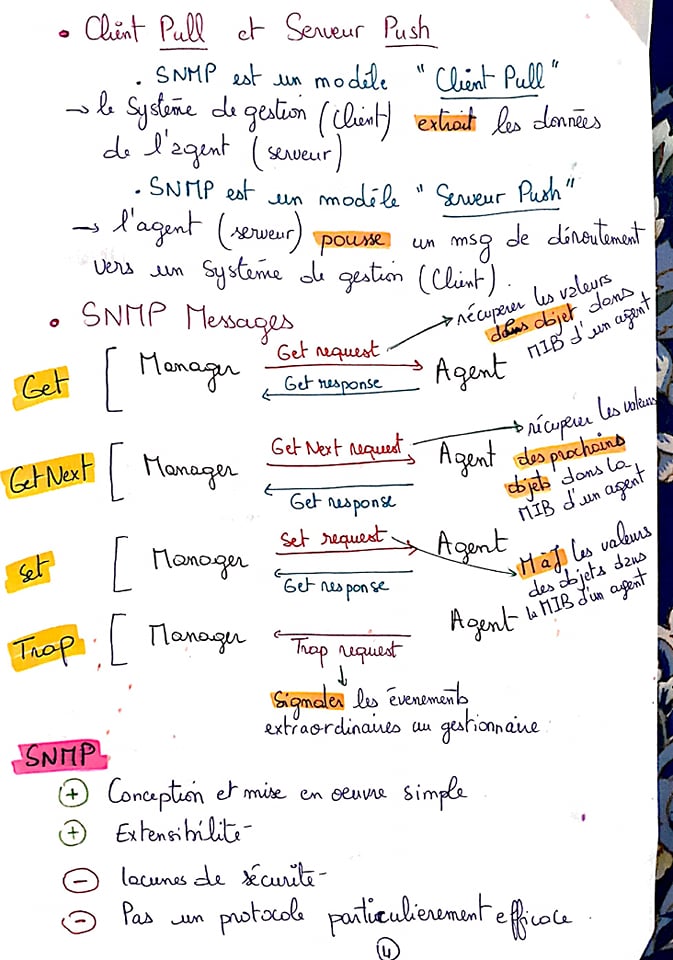 • Client Pull et Serveur Push
. SNMP est un modèle "Client Pull"
→ le Système de gestion (Client) extrait les données
de l'agent (serveur)
. SNMP est un modèle "Serveur Push"
→ l'agent (serveur) pousse un msg de déroutement
vers un Système de gestion (Client).
• SNMP Messages
Get [ Manager Get request Agent
Get response
→ récupérer les valeurs
dans objet dans
MIB d'un agent
GetNext [ Manager Get Next request Agent
Get response
→ récupérer les valeurs
des prochains
objets dans la
MIB d'un agent
Set [ Manager Set request Agent
Get response
MàJ les valeurs
des objets dans
la MIB d'un agent
Trap : [ Manager Trap request Agent
↓
Signaler les évenements
extraordinaires au gestionnaire.
SNMP
+ Conception et mise en oeuvre simple
+ Extensibilité
- lacunes de sécurité
- Pas un protocole particulierement efficace.
4